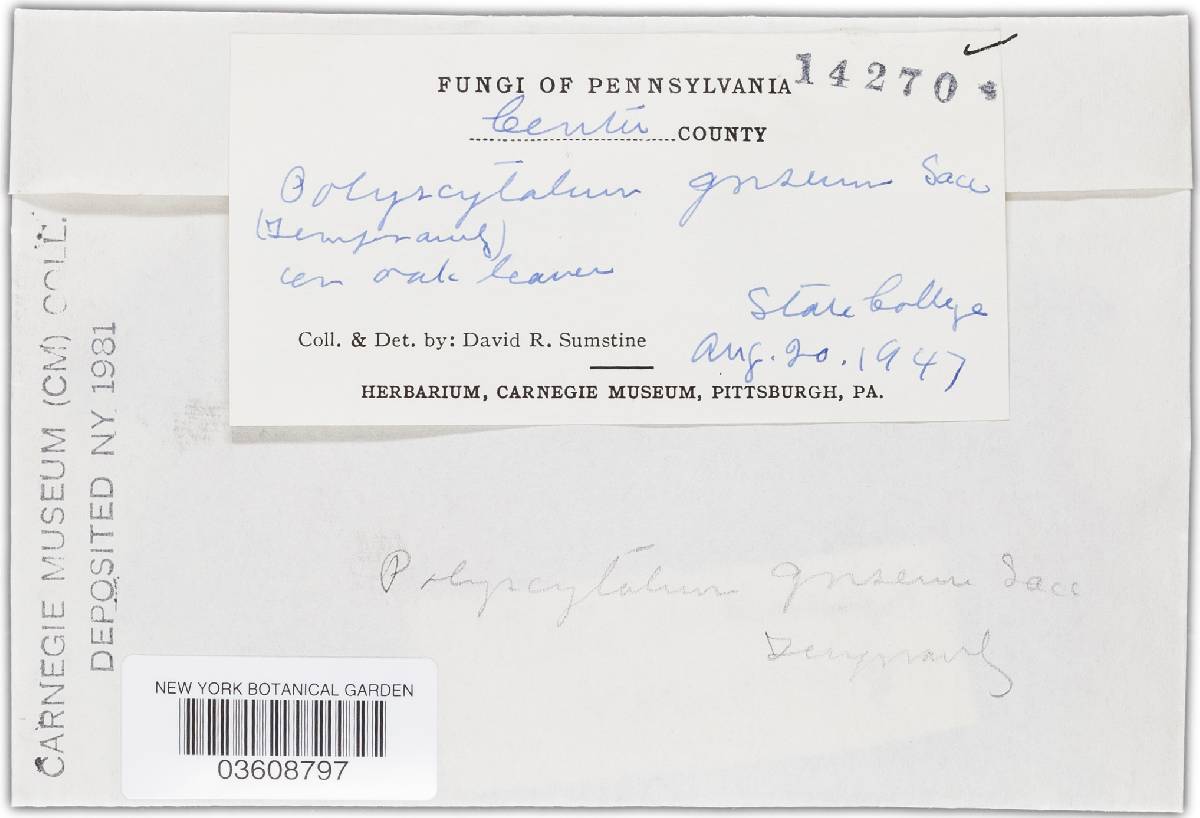 14270
FUNGI OF PENNSYLVANIA
Centre COUNTY
Polyscytalum griseum Sacc
(Temporarily)
on oak leaves
State College
Coll. & Det. by: David R. Sumstine
Aug. 20. 1947
HERBARIUM, CARNEGIE MUSEUM, PITTSBURGH, PA.
CARNEGIE MUSEUM (CM) COLL.
DEPOSITED NY 1981
Polyscytalum griseum Sacc
Temporarily
NEW YORK BOTANICAL GARDEN
03608797